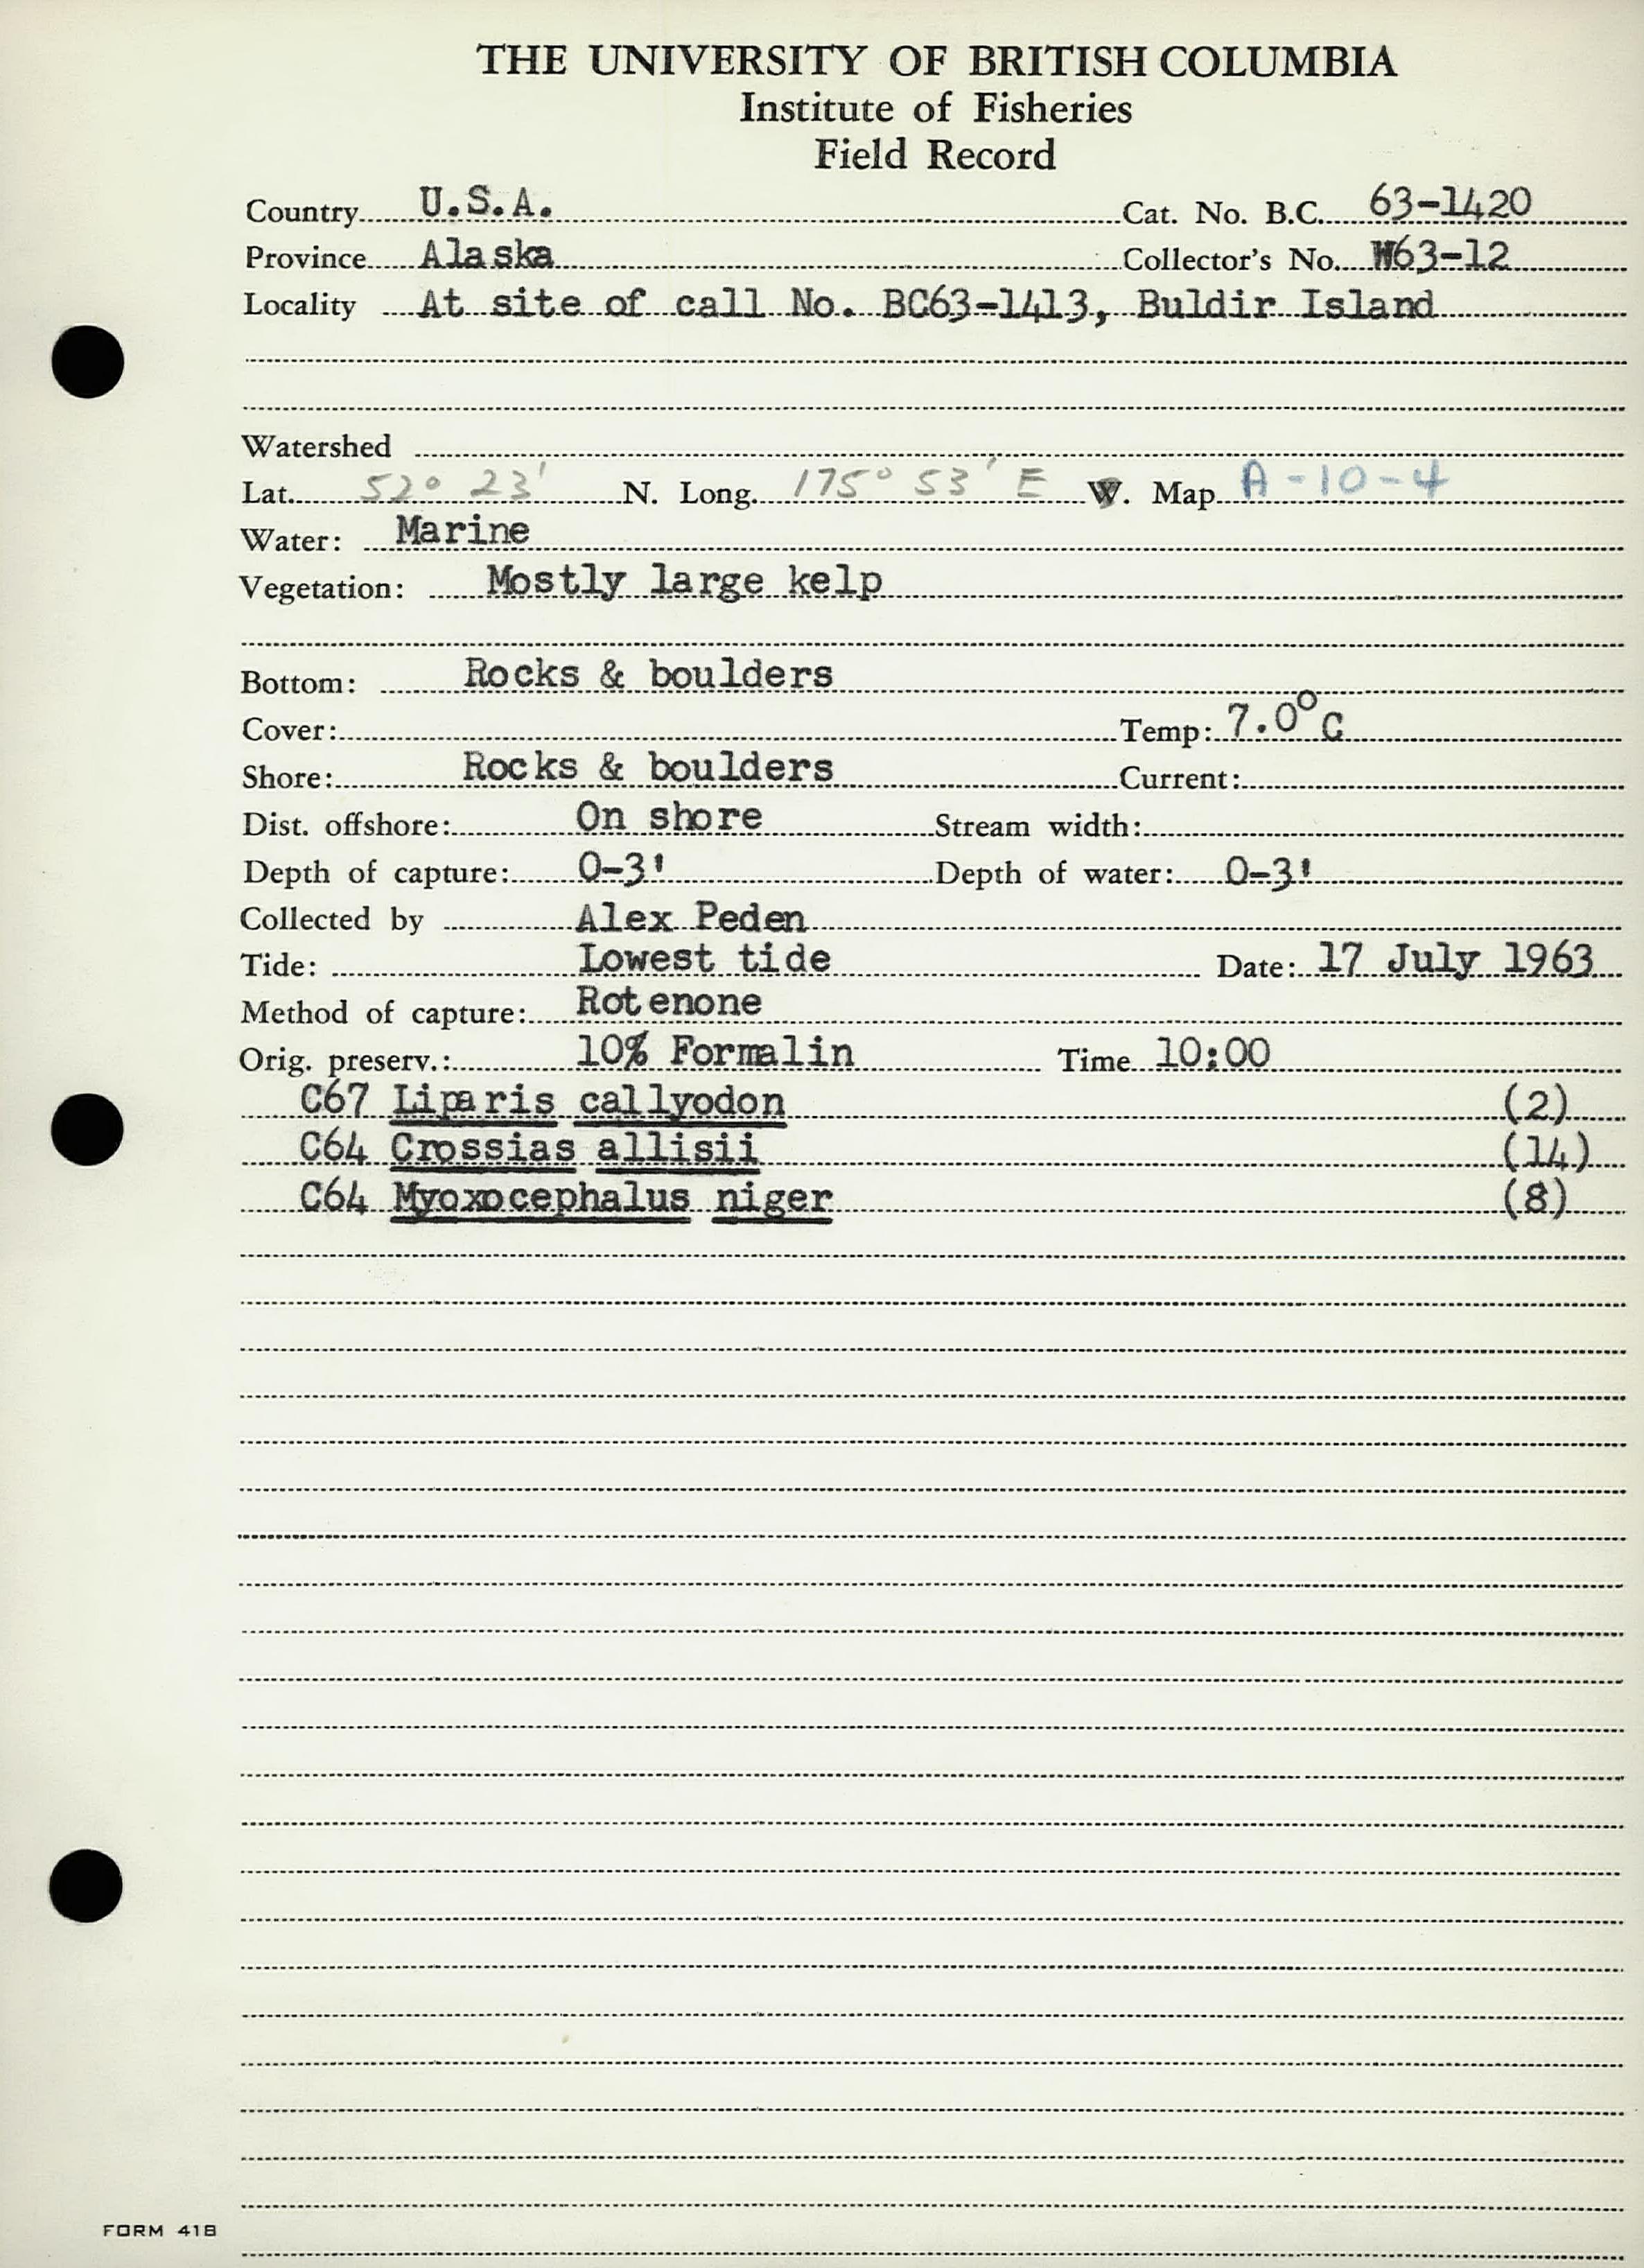 THE UNIVERSITY OF BRITISH COLUMBIA
Institute of Fisheries
Field Record
Country U.S.A. Cat. No. B.C. 63-1420
Province Alaska Collector's No. W63-12
Locality At site of call No. BC63-1413, Buldir Island
Watershed
Lat. 52° 23' N. Long. 175° 53' E W. Map A-10-4
Water: Marine
Vegetation: Mostly large kelp
Bottom: Rocks & boulders
Cover: Temp: 7.0°C
Shore: Rocks & boulders Current:
Dist. offshore: On shore Stream width:
Depth of capture: 0-3' Depth of water: 0-3'
Collected by Alex Peden
Tide: Lowest tide Date: 17 July 1963
Method of capture: Rotenone
Orig. preserv.: 10% Formalin Time 10:00
C67 Liparis callyodon (2)
C64 Crossias allisii (14)
C64 Myoxocephalus niger (8)
FORM 41B